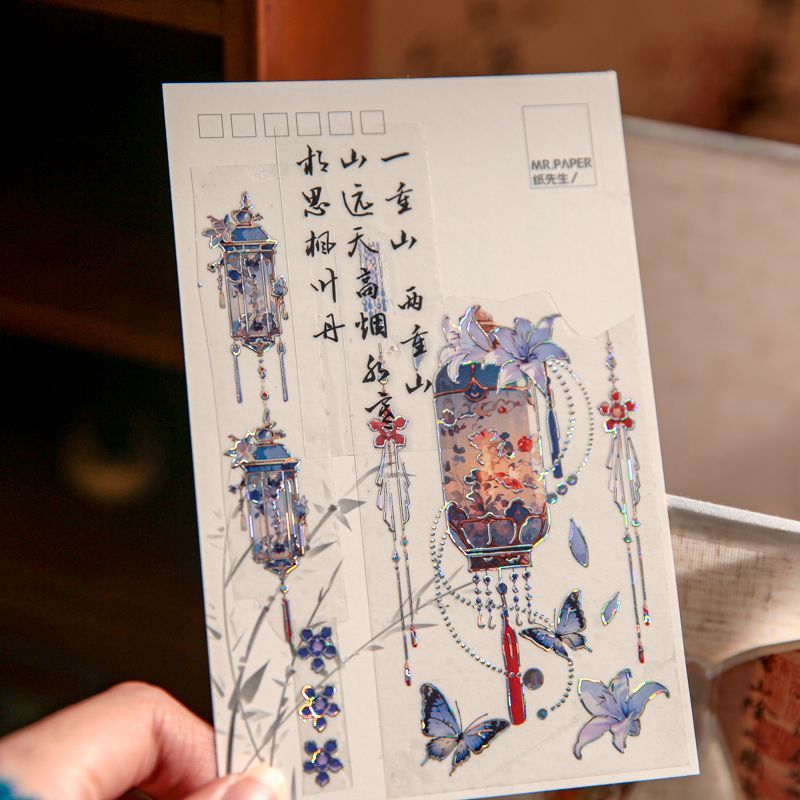 一重山 两重山
山远天高烟水寒
相思枫叶丹
MR.PAPER
纸先生/